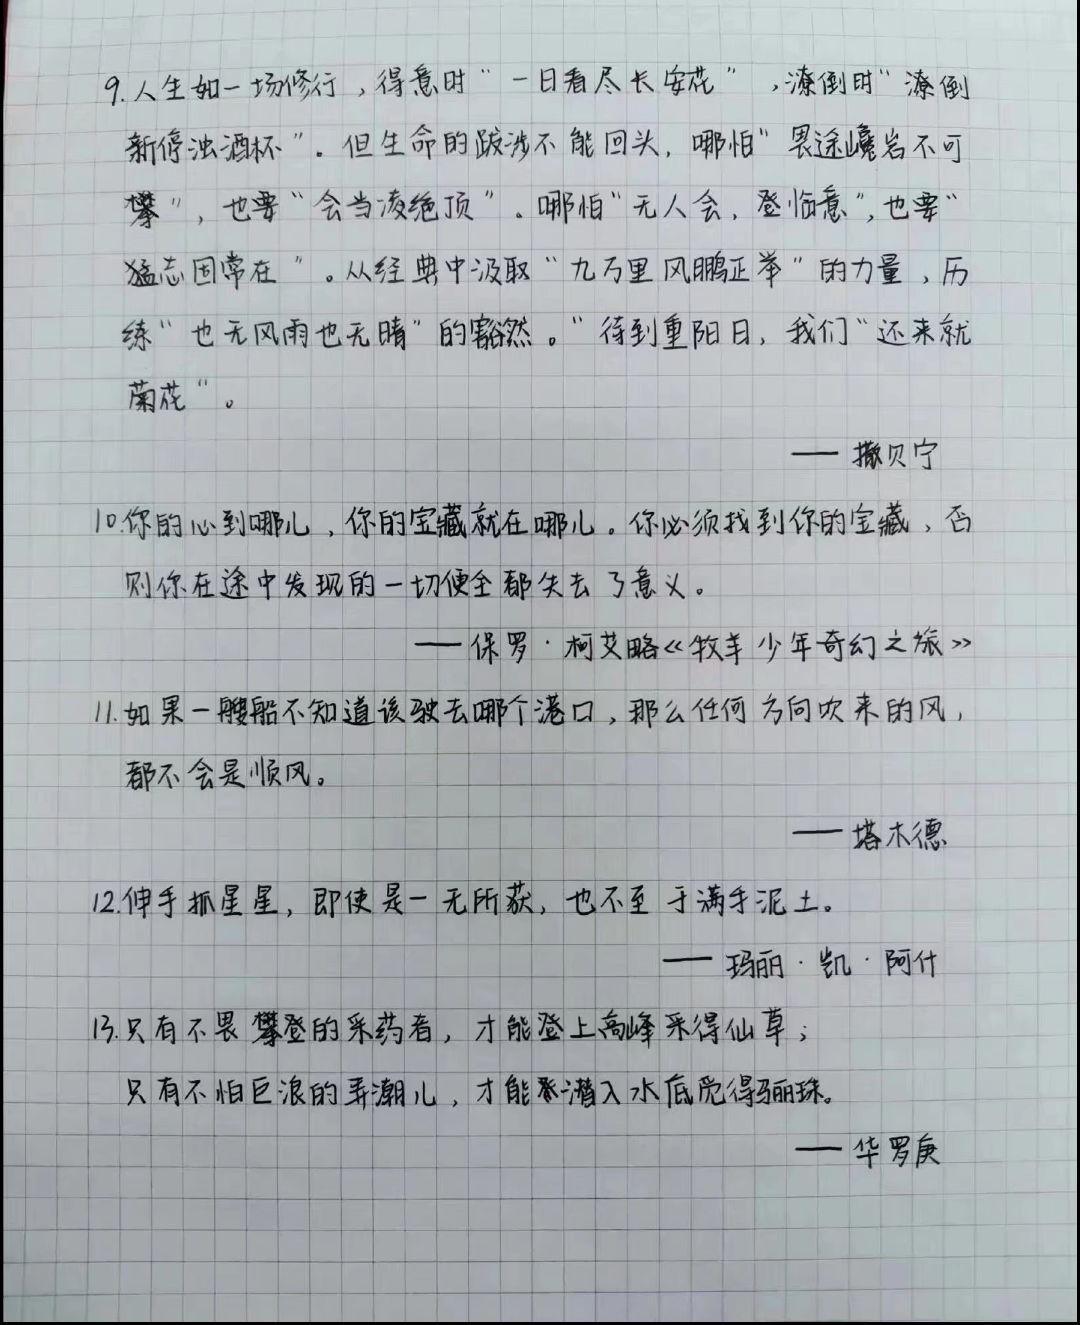 9.人生如一场修行，得意时“一日看尽长安花”，潦倒时“潦倒
新停浊酒杯”。但生命的跋涉不能回头，哪怕“畏途巉岩不可
攀”，也要“会当凌绝顶”。哪怕“无人会，登临意”，也要“
猛志固常在”。从经典中汲取“九万里风鹏正举”的力量，历
练“也无风雨也无晴”的豁然。“待到重阳日，我们“还来就
菊花”。
——撒贝宁
10.你的心到哪儿，你的宝藏就在哪儿。你必须找到你的宝藏，否
则你在途中发现的一切便全都失去了意义。
——保罗·柯艾略《牧羊少年奇幻之旅》
11.如果一艘船不知道该驶去哪个港口，那么任何方向吹来的风，
都不会是顺风。
——塔木德
12.伸手抓星星，即使是一无所获，也不至于满手泥土。
——玛丽·凯·阿什
13.只有不畏攀登的采药者，才能登上高峰采得仙草；
只有不怕巨浪的弄潮儿，才能潜入水底觅得骊珠。
——华罗庚